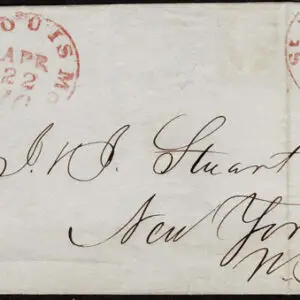 OUIS Mo
APR
22
J. & J. Stuart
New Yor
N.